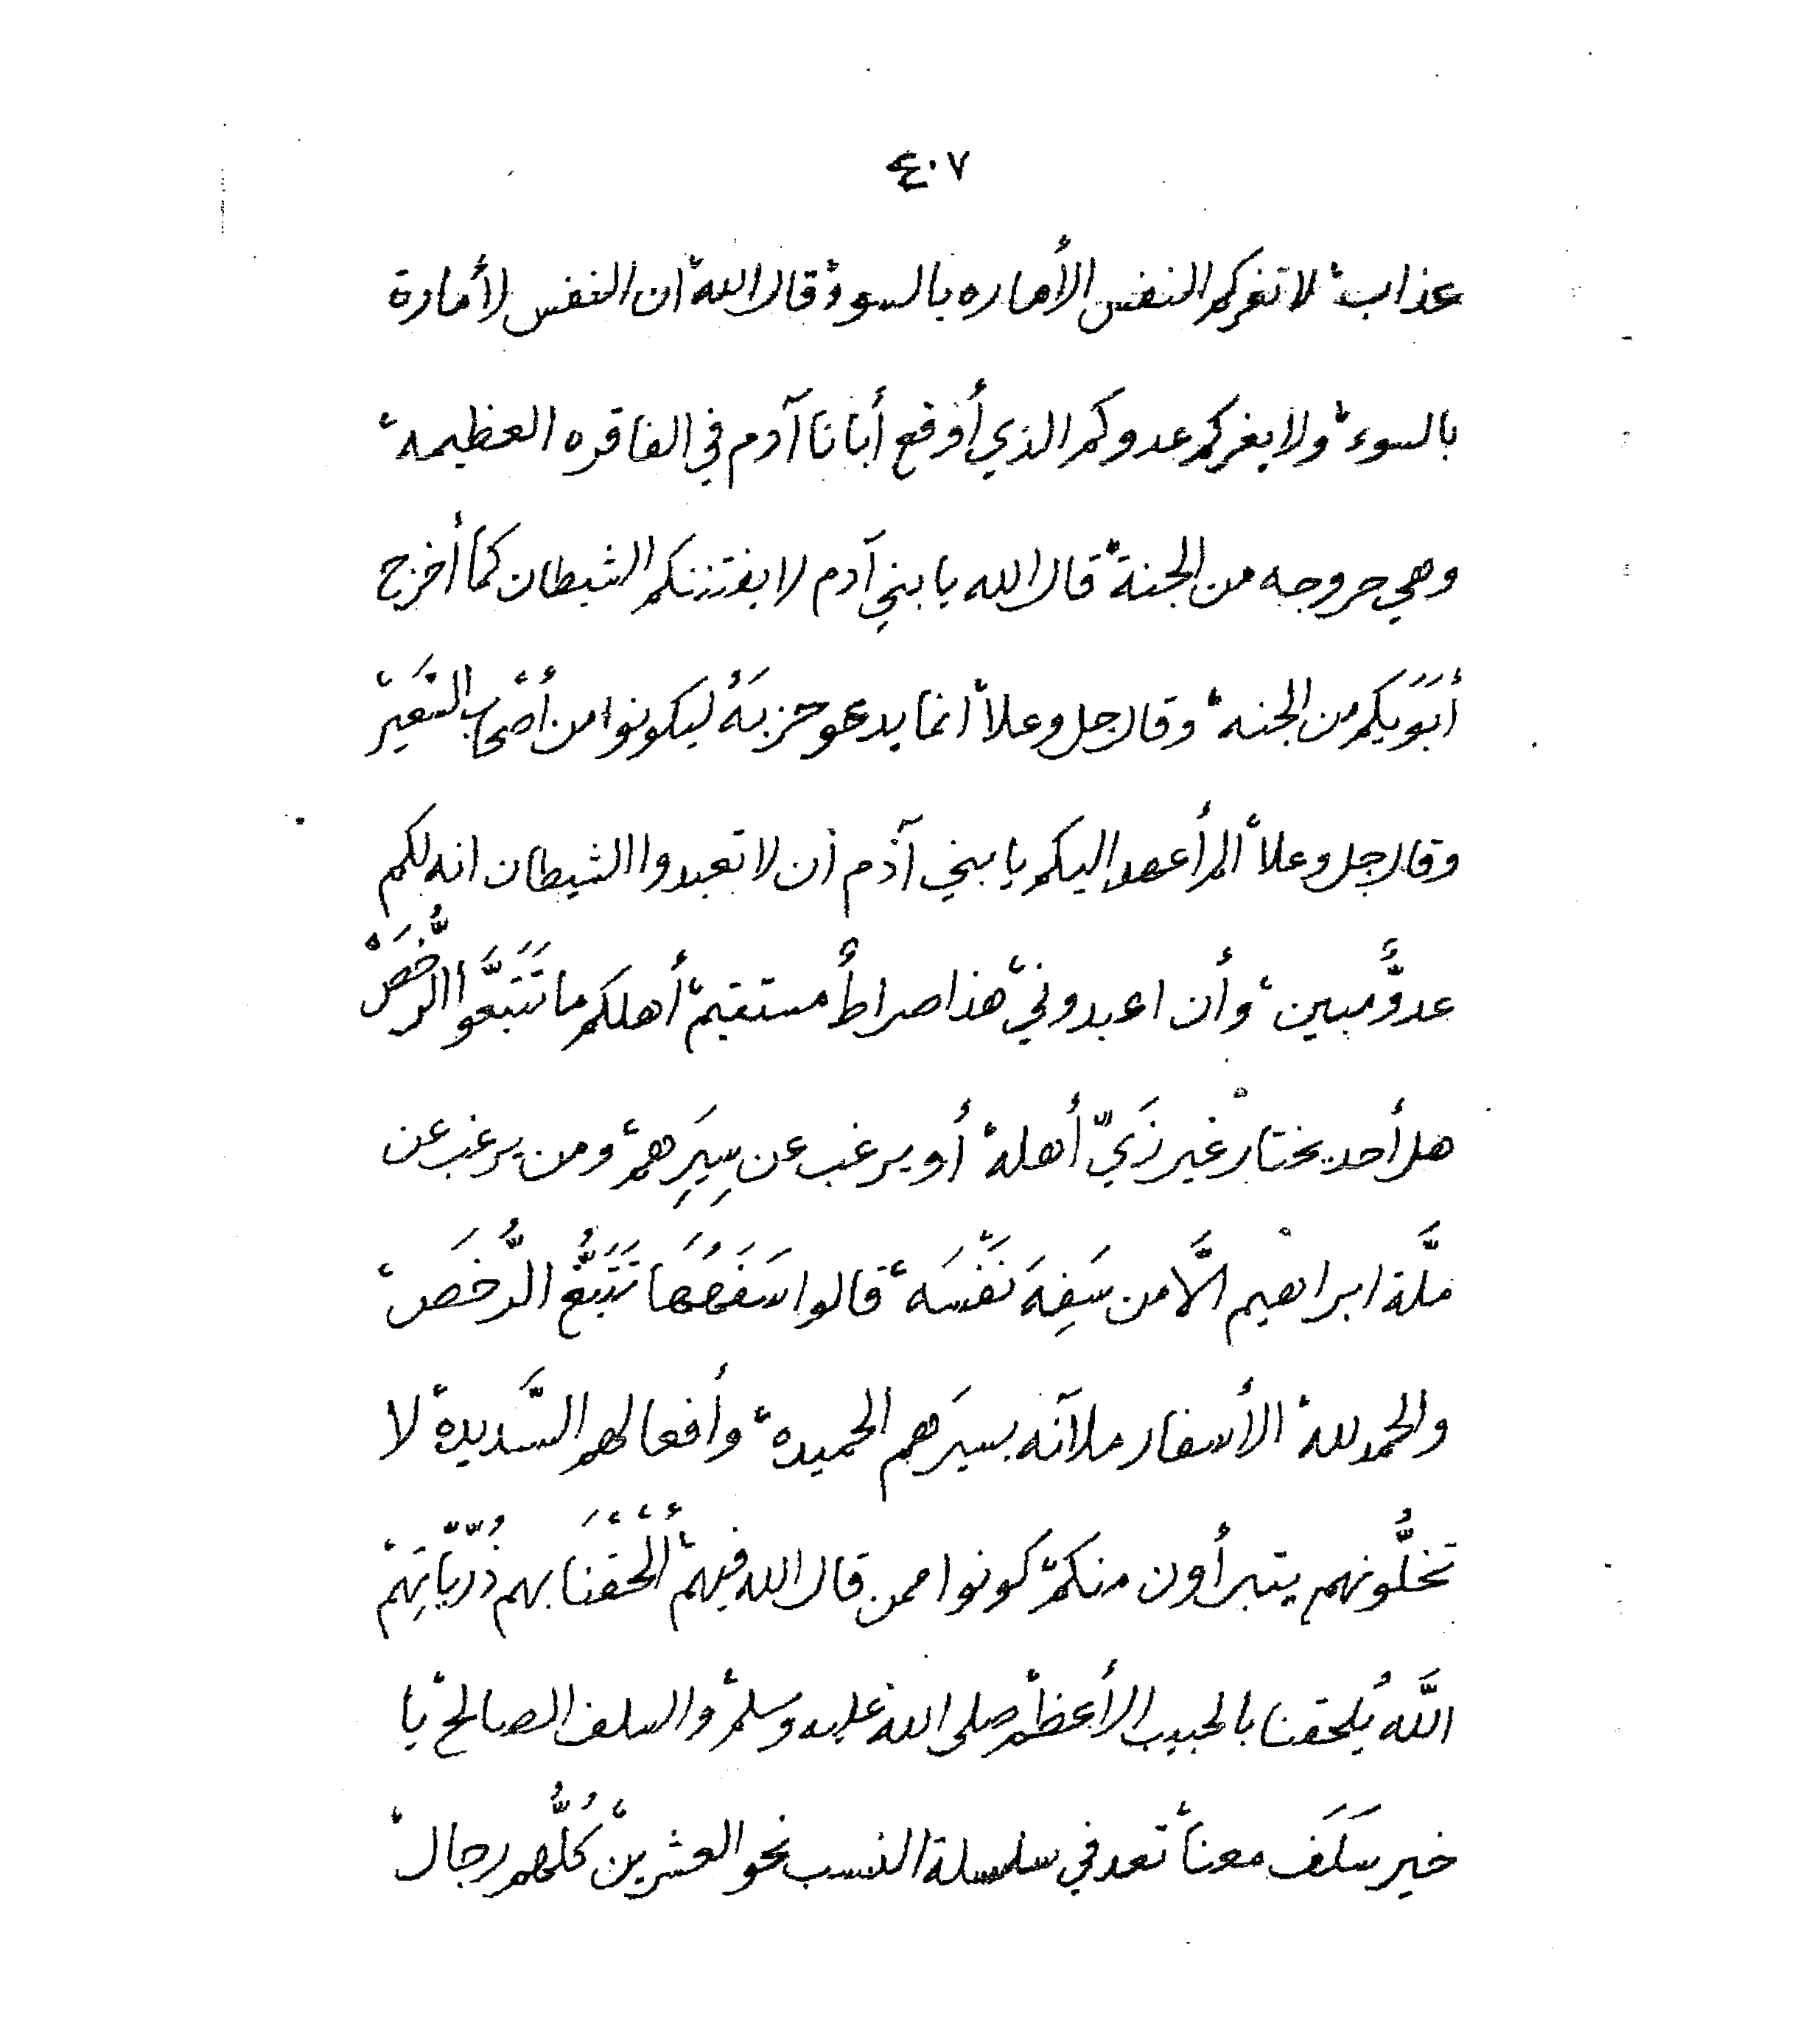 ٤٠٧
عذاب، لا تغركم النفس الأماره بالسوء، قال الله، ان النفس لأمارة
بالسوء، ولا يغركم عدوكم الذي أوقع أبانا آدم في الفاقره العظيمه،
وهي خروجه من الجنة، قال الله يا بني آدم لا يفتننكم الشيطان كما أخرج
أبَوَيكم من الجنه، وقال جل وعلا، انما يدعو حزبَهُ ليكونوا من أصْحاب السَّعير،
وقال جل وعلا، ألم أعهد إليكم يا بني آدم أن لا تعبدوا الشيطان انه لكم
عدوٌّ مبين، وأن اعبدوني، هذا صراطٌ مستقيم، أهلكم ما تَتَبَّعُوا الرُّخَصْ،
هل أحد يختارْ غير زَيّ أهله، أو يرغب عن سِيَرِهم، ومن يرغب عن
ملَّة ابراهيم الَّا من سَفِهَ نَفْسَه، قالوا سَفَهُهَا تَتَبُّع الرُّخَص،
والحمد لله، الأسفار ملآنه بسيَرهم الحميده، وأفعالهم السَّديدة، لا
تخلُّونهم يتبرأون منكم، كونوا ممن قال الله فيهم، ألْحَقْنَا بهم ذُرّيّاتِهم،
اللَّه يُلحقنا بالحبيب الأعظم، صلى الله عليه وسلم، والسلف الصالح، يا
خير سَلَف معنا، تعد في سلسلة النسب نحو العشرين، كُلُّهم رجال،